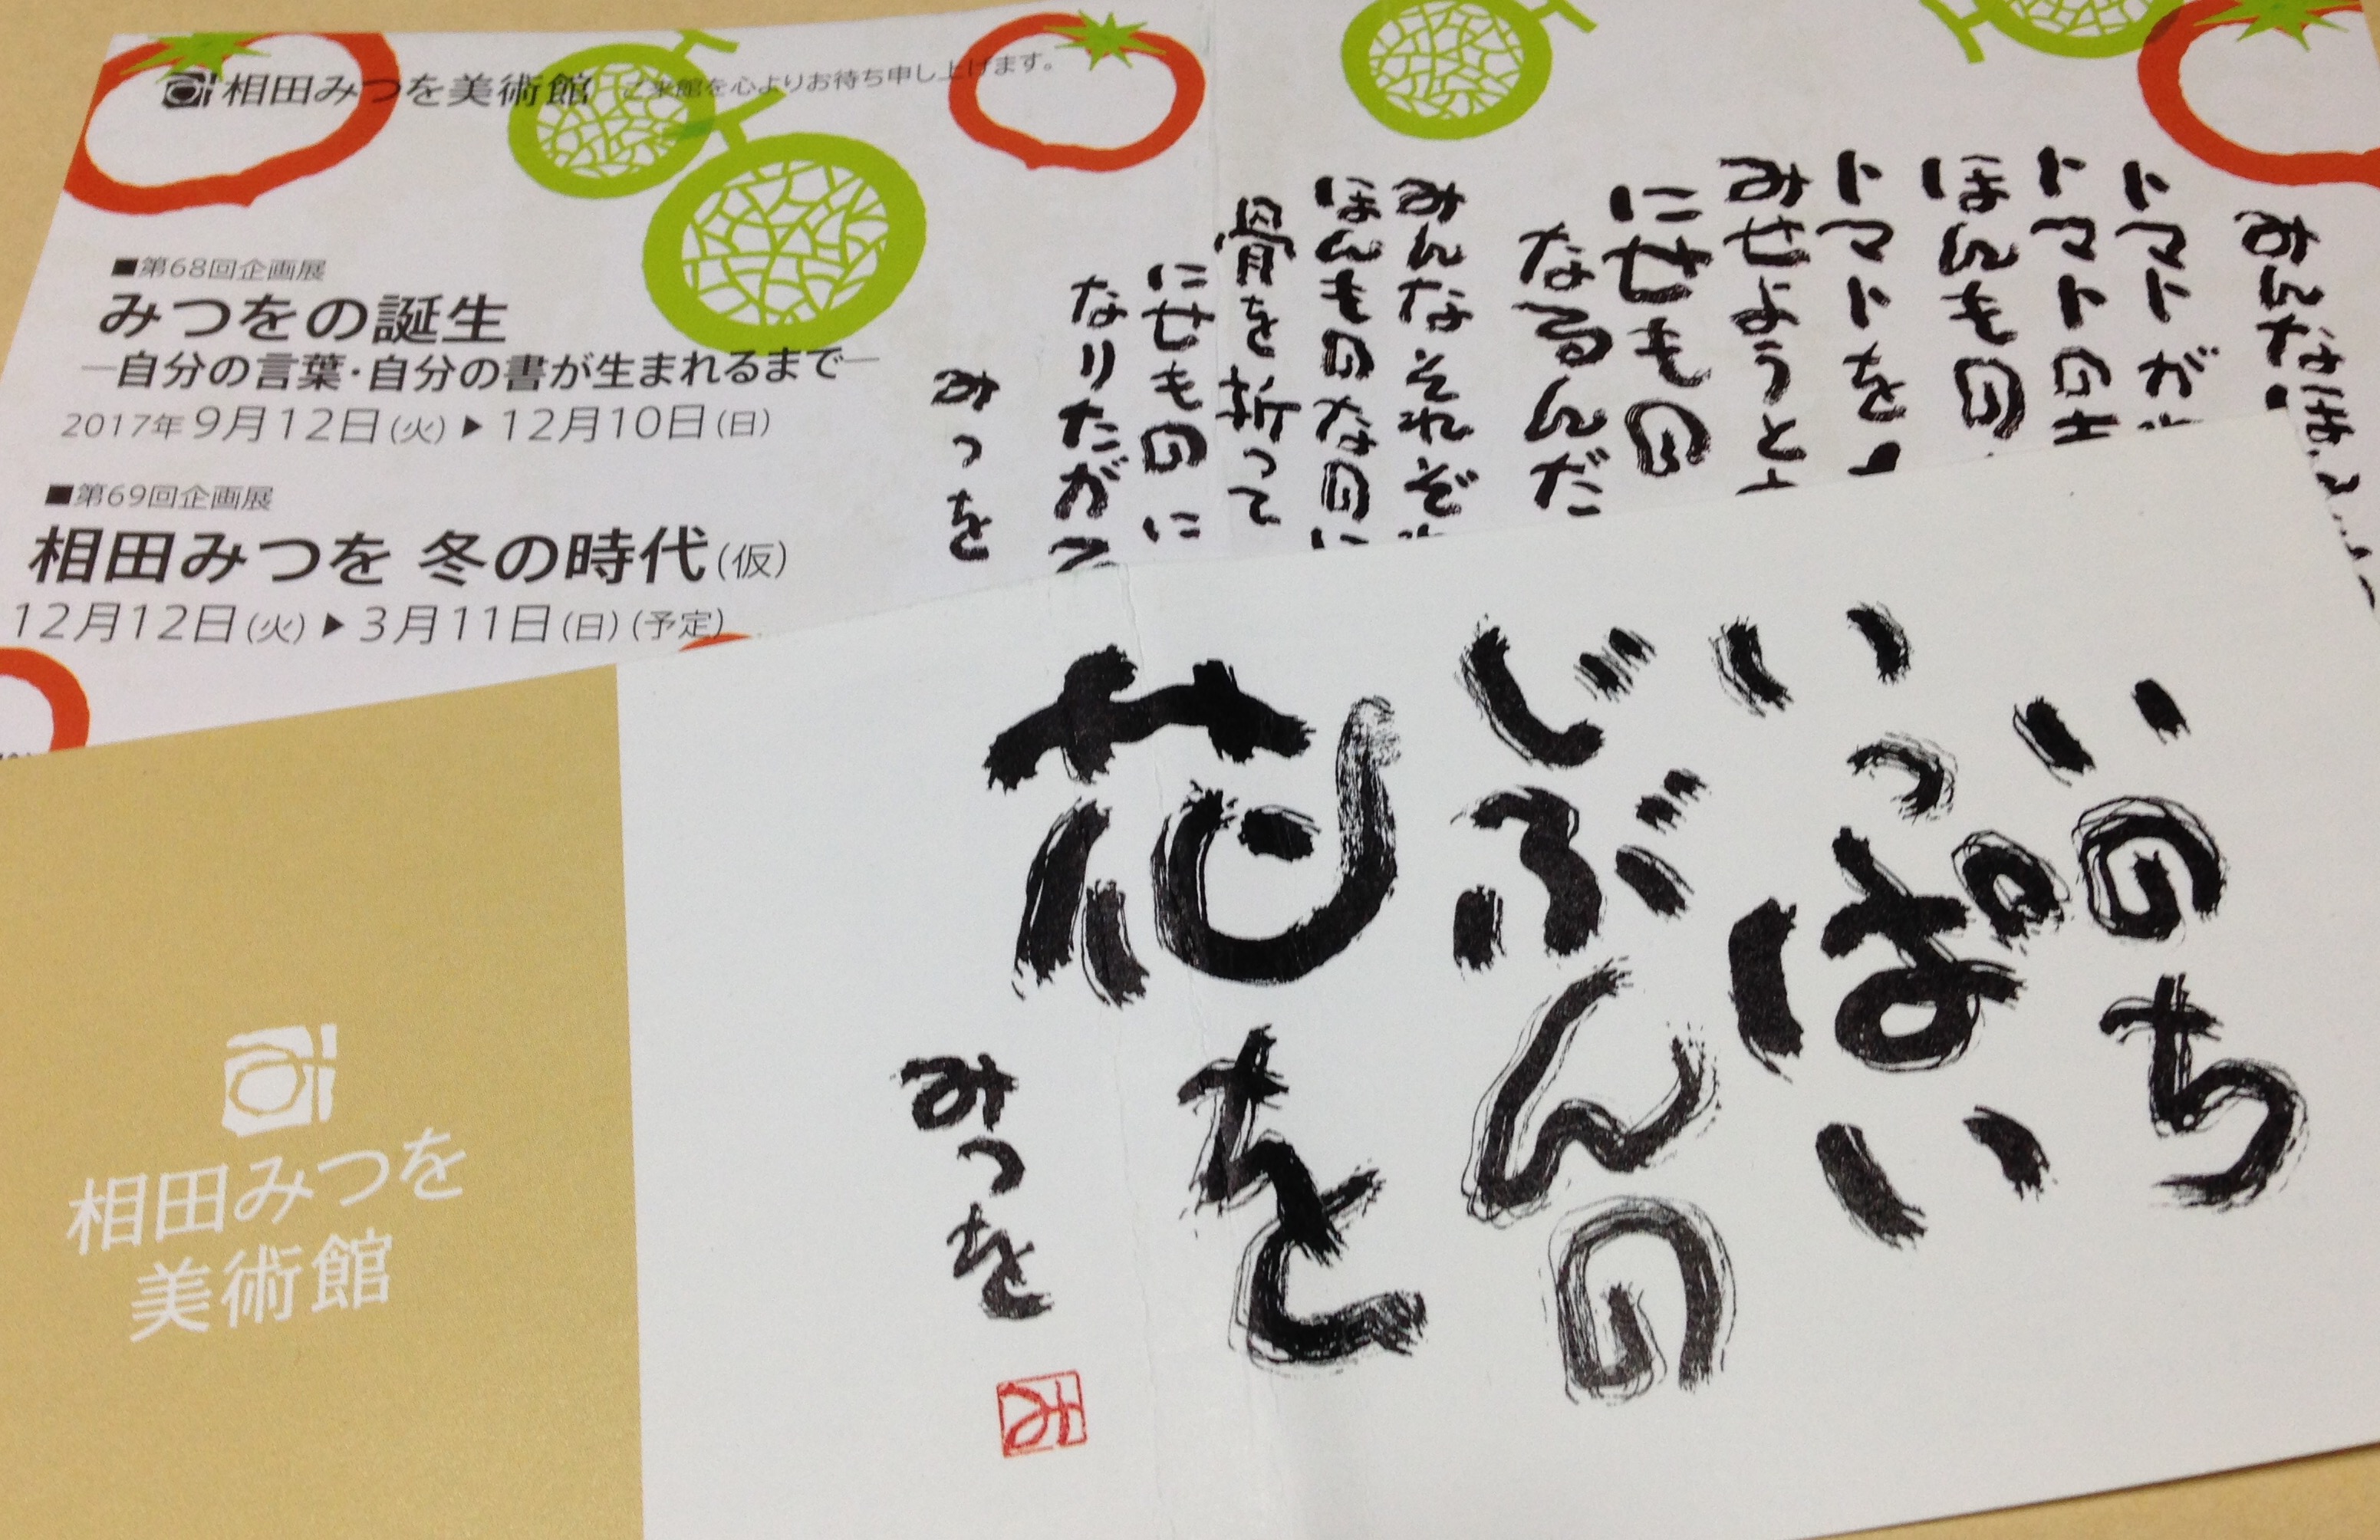 相田みつを美術館 ご来館を心よりお待ち申し上げます。
■第68回企画展
みつをの誕生
―自分の言葉・自分の書が生まれるまで―
2017年9月12日(火)▶12月10日(日)
■第69回企画展
相田みつを 冬の時代(仮)
12月12日(火)▶3月11日(日)(予定)
みんなほ
トマトが
トマトの
ほんもの
トマトを
みせようと
にせもの
なるんだ
みんなそれぞ
ほんものなのに
骨を折って
にせものに
なりたが
みつを
いのち
いっぱい
じぶんの
花を
みつを
み
相田みつを
美術館